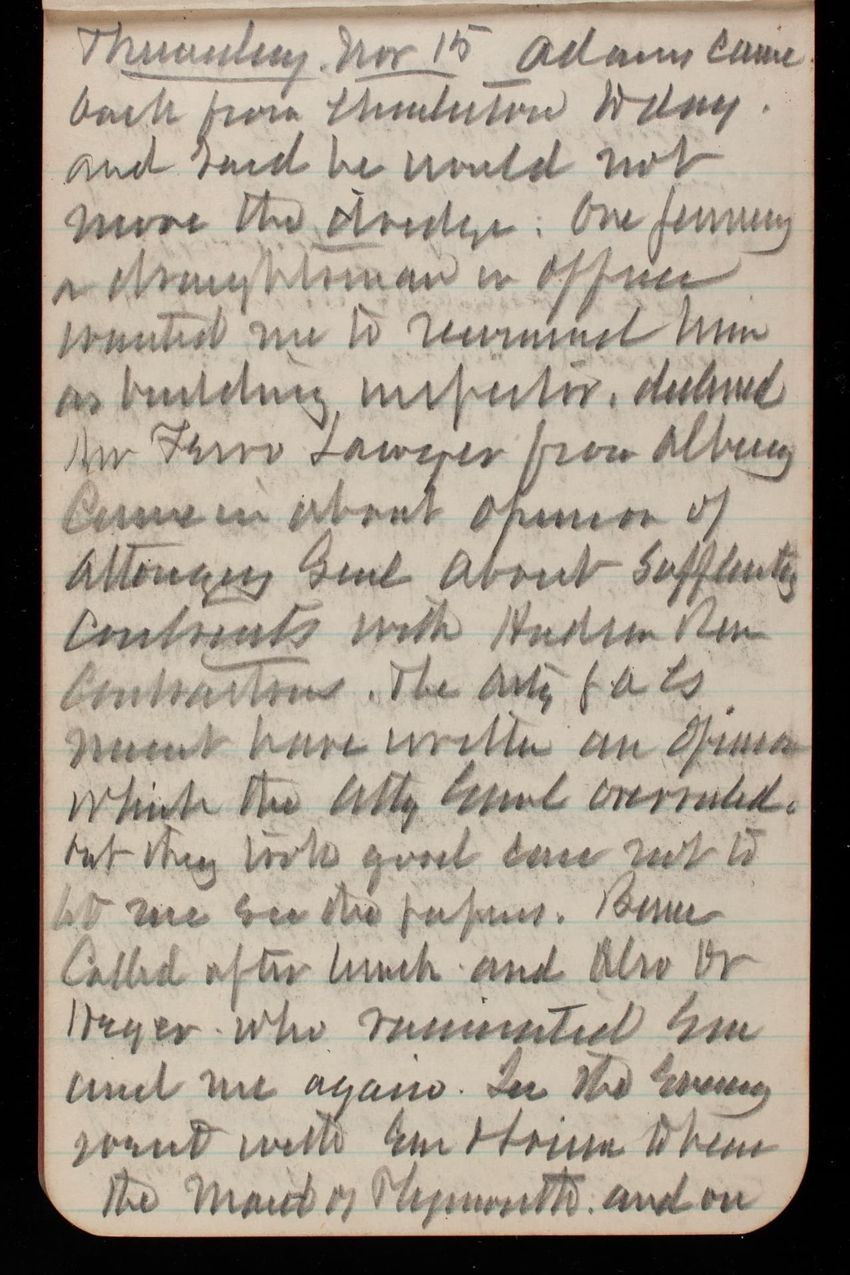 Thursday. Nov 15 Adams came
back from Charleston today.
and said he would not
move the dredge. One
a draughtsman in office
wanted me to recommend him
as building inspector. declined
Mr Lawyer from Albany
Came in about opinion of
Attorneys Genl about
Contracts with Hudson River
Contractors. The Arty
must have written an Opinion
which the Atty Genl overruled.
but they took good care not to
let me see the papers.
Called after lunch and Also Dr
Heger. who vaccinated Em
and me again. In the Evening
went with Em to hear
the Maid of Plymouth. and on